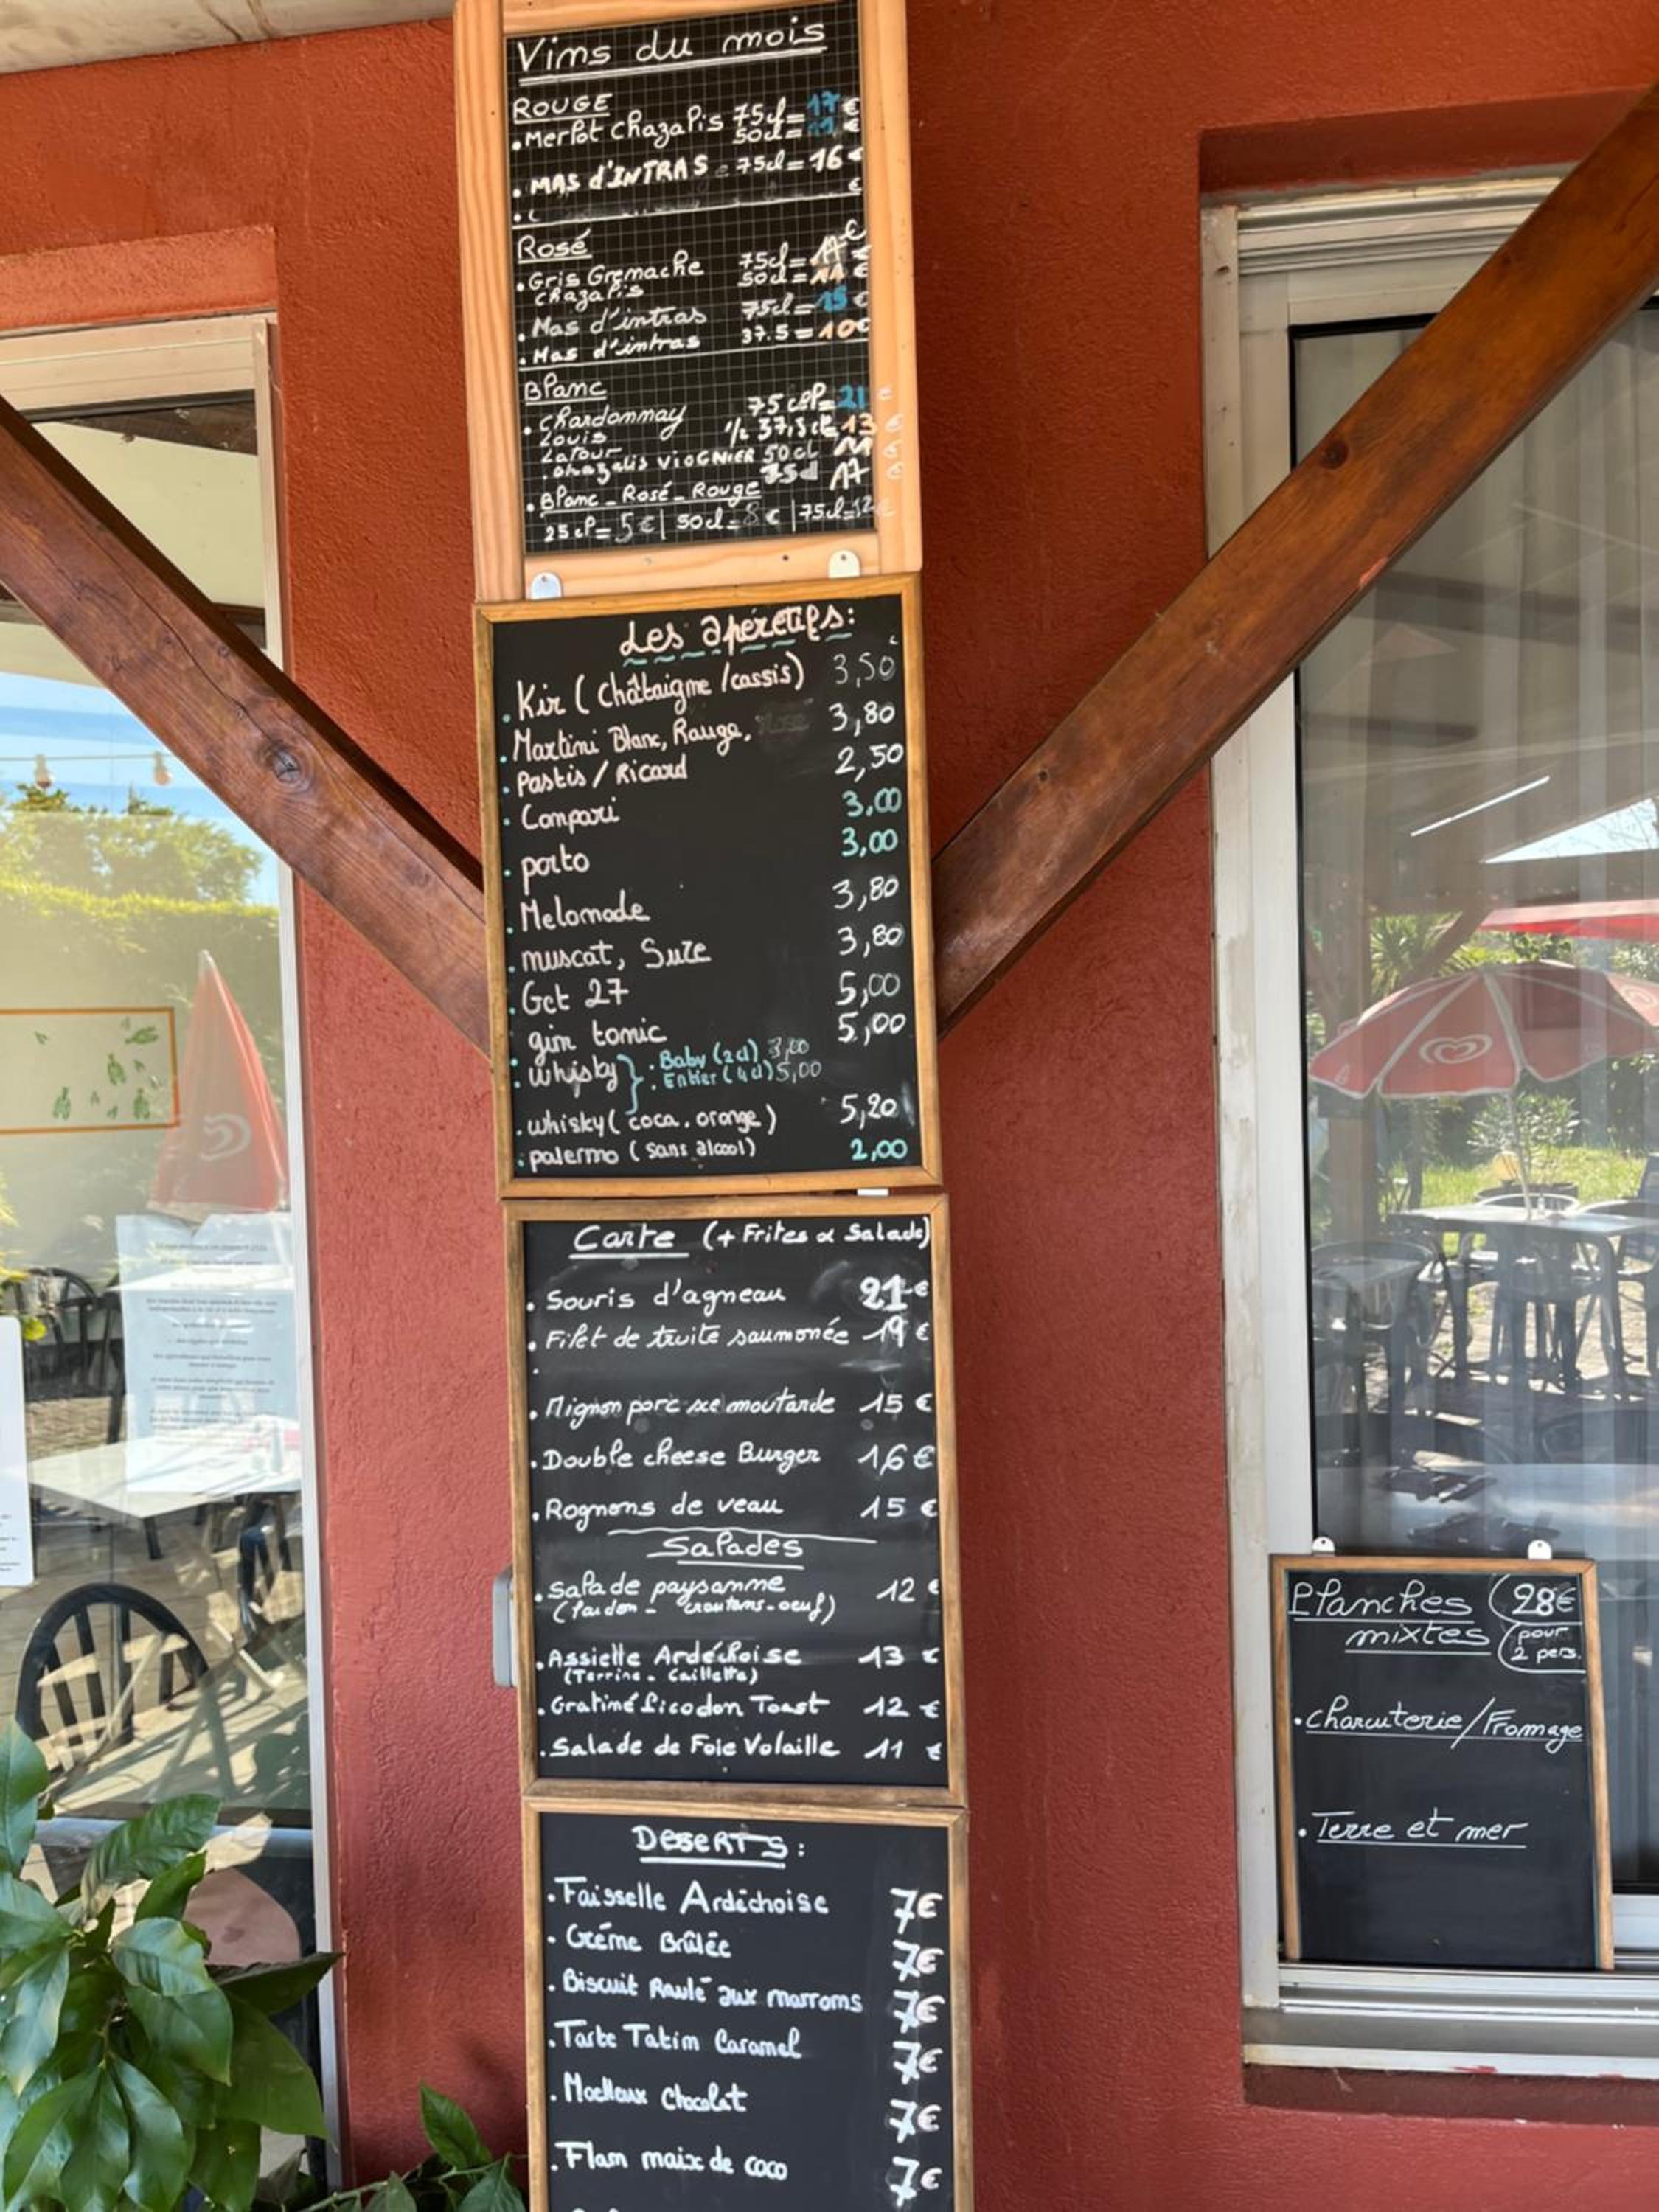 Vins du mois
ROUGE
. Merlot Chazalis 75cl= 17 €
50cl= 11 €
. MAS d'INTRAS 75cl= 16 €
€
Rosé
. Gris Grenache 75cl= 17 €
Chazalis 50cl= 11 €
. Mas d'intras 75cl= 15 €
. Mas d'intras 37.5= 10€
Blanc
. Chardonnay 75 cl= 21 €
Louis ½ 37,5 cl 13 €
Latour
. chazalis VIOGNIER 50cl 11 €
75cl 17 €
. Blanc - Rosé - Rouge
25cl= 5€ | 50cl= 8€ | 75cl=12€
Les apéretifs:
. Kir ( Châtaigne / cassis) 3,50
. Martini Blanc, Rouge, 3,80
. Pastis / Ricard 2,50
. Compari 3,00
. porto 3,00
. Melomade 3,80
. muscat, Suze 3,80
. Get 27 5,00
. gin tonic 5,00
. whisky } : Baby (2cl) 3,00
: Entier (4cl) 5,00
. whisky ( coca, orange ) 5,20
. palermo ( sans alcool) 2,00
Carte (+ Frites & Salade)
. Souris d'agneau 21 €
. Filet de truite saumonée 19 €
. Mignon porc sce moutarde 15 €
. Double cheese Burger 16 €
. Rognons de veau 15 €
Salades
. Salade paysanne 12 €
(Lardon - croutons - oeuf)
. Assiette Ardéchoise 13 €
(Terrine - Caillette)
. Gratiné Picodon Toast 12 €
. Salade de Foie Volaille 11 €
DESERTS :
. Faisselle Ardéchoise 7€
. Créme Brûlée 7€
. Biscuit Roulé aux marrons 7€
. Tarte Tatin Caramel 7€
. Moelleux Chocolat 7€
. Flan noix de coco 7€
Planches 28€
mixtes pour
2 pers.
. Charcuterie/Fromage
. Terre et mer